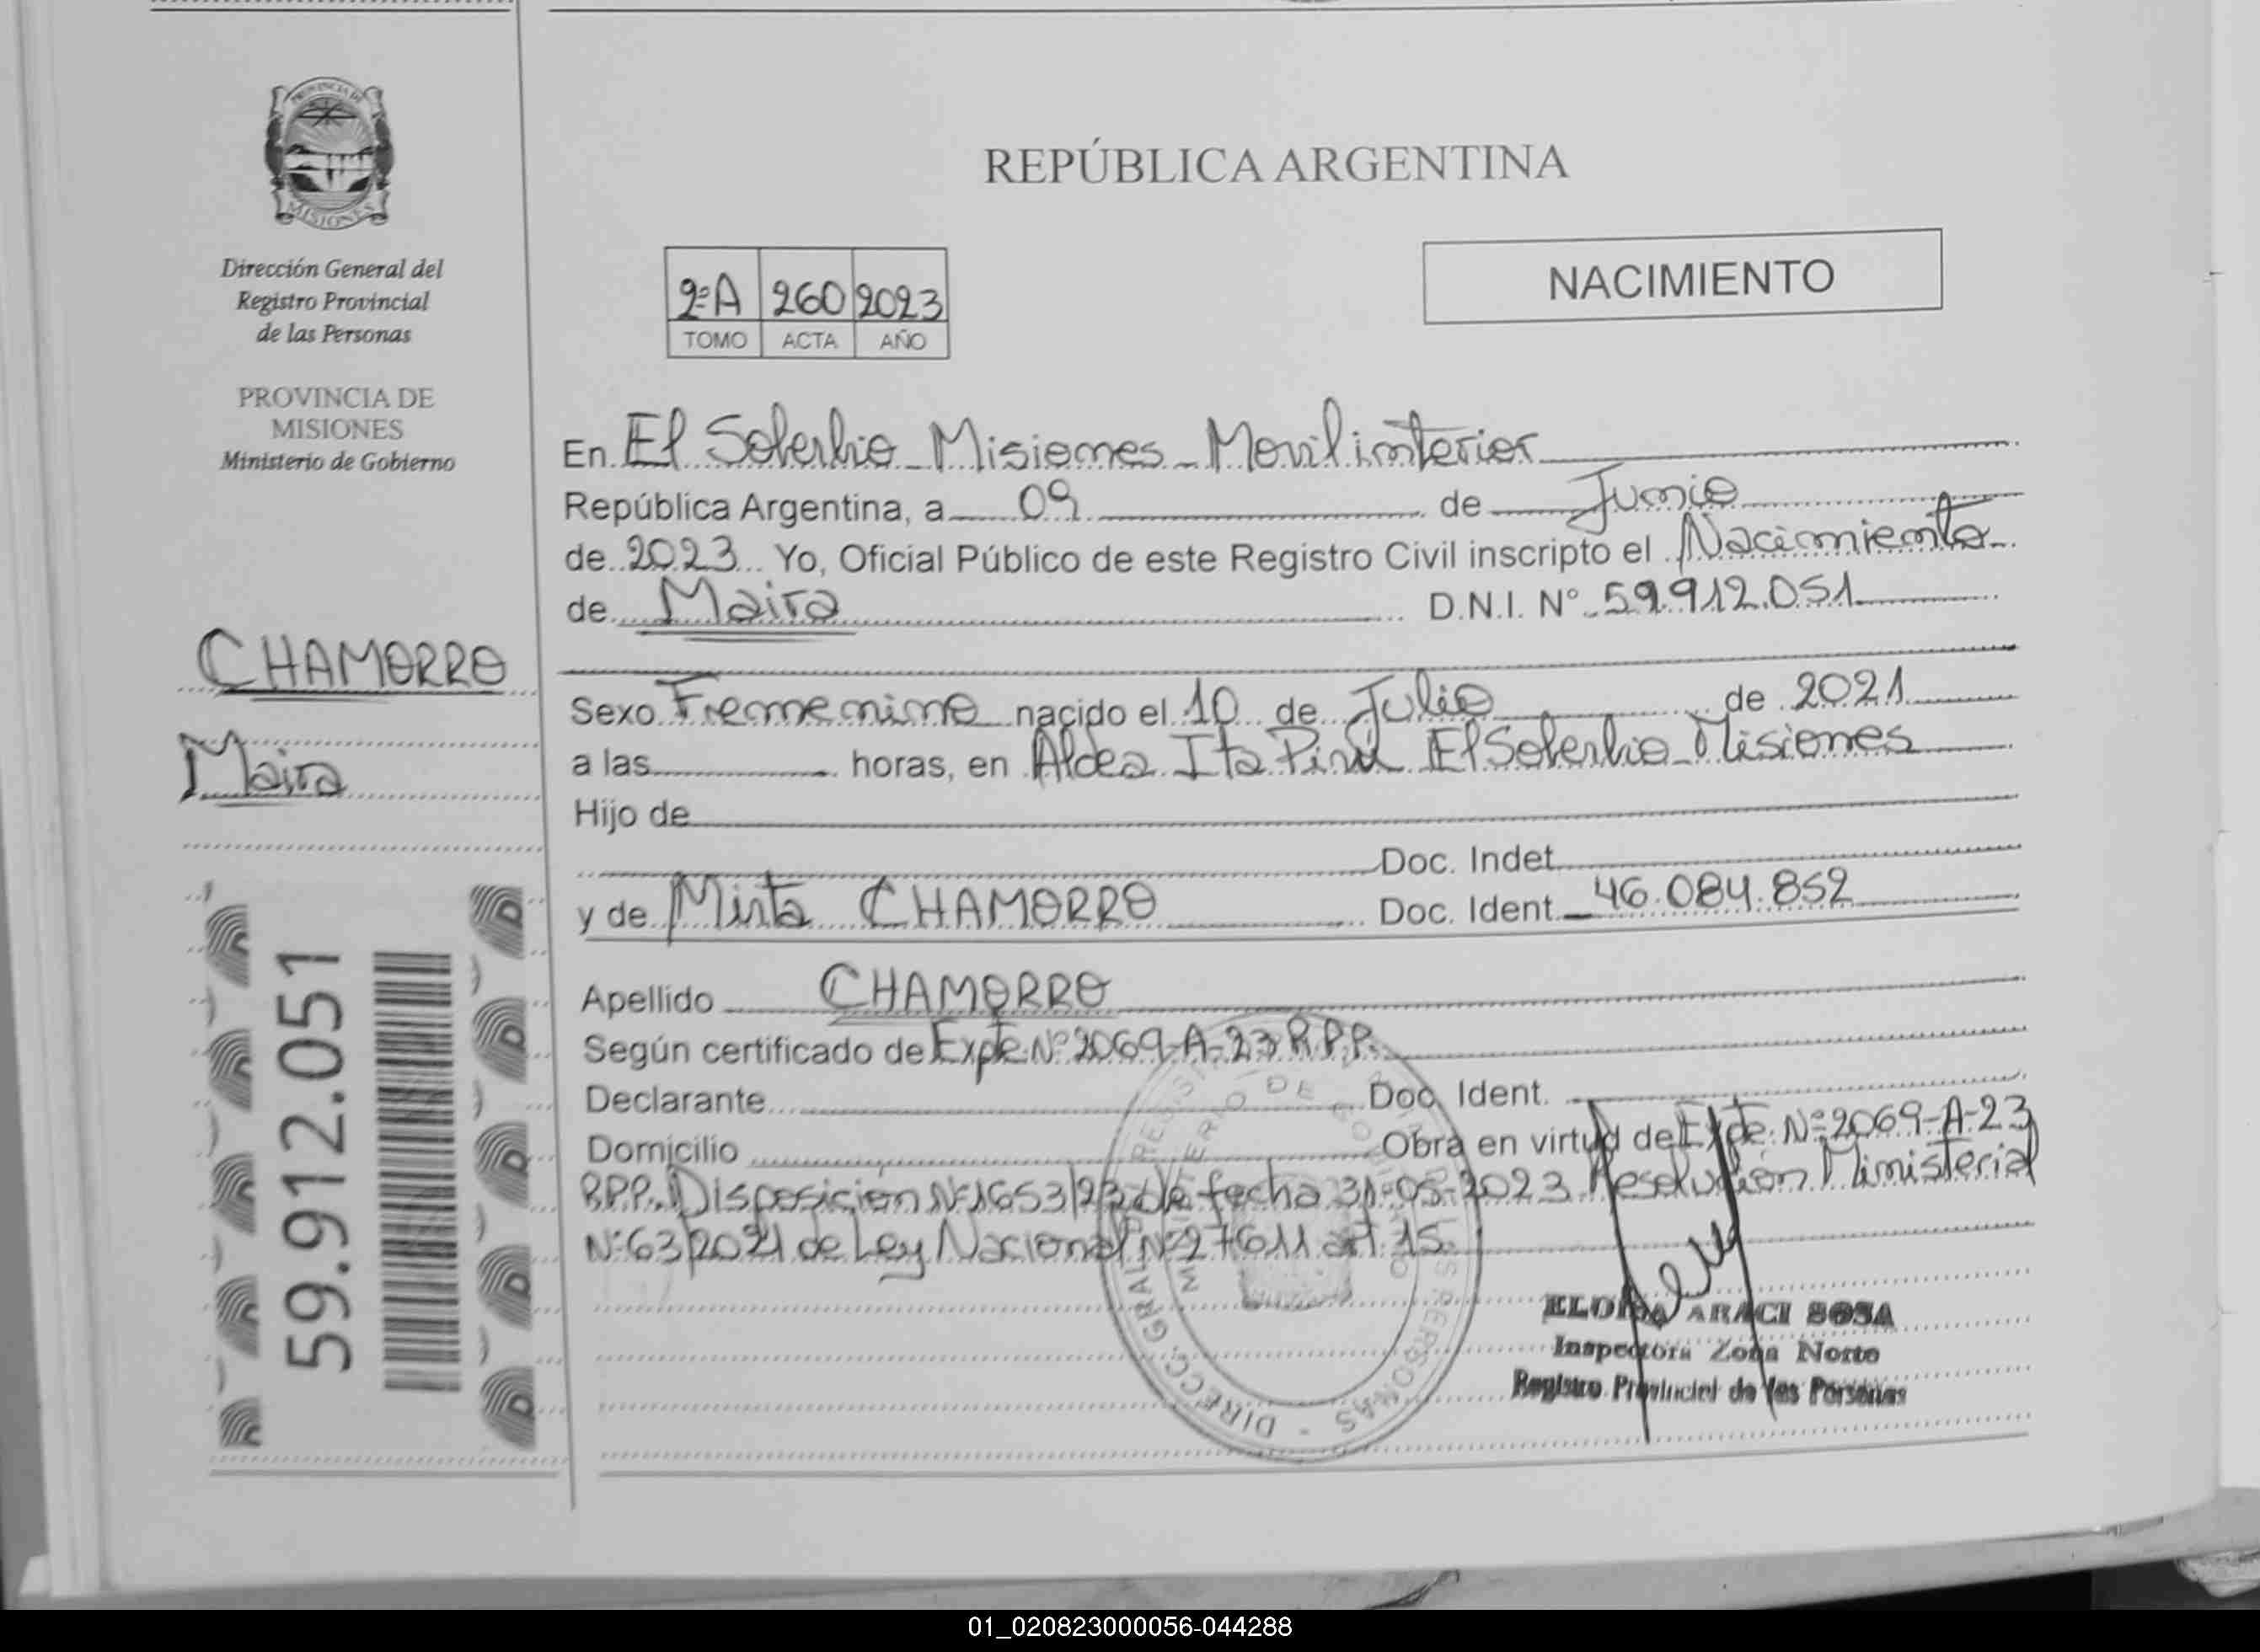 PROVINCIA DE
MISIONES
Dirección General del
Registro Provincial
de las Personas
PROVINCIA DE
MISIONES
Ministerio de Gobierno
CHAMORRO
Maira
59.912.051
REPÚBLICA ARGENTINA
NACIMIENTO
2ºA 260 2023
TOMO ACTA AÑO
En El Soberbio Misiones - Movil interior
República Argentina, a 09 de Junio
de 2023 Yo, Oficial Público de este Registro Civil inscripto el Nacimiento
de Maira D.N.I. Nº 59.912.051
Sexo Femenino nacido el 10 de Julio de 2021
a las horas, en Aldea Ita Pirú El Soberbio - Misiones
Hijo de
Doc. Indet.
y de Mirta CHAMORRO Doc. Ident. 46.084.852
Apellido CHAMORRO
Según certificado de Expte Nº 2069-A-23 R.P.P.
Declarante Doc. Ident.
Domicilio Obra en virtud de Expte. Nº 2069-A-23
R.P.P. Disposición Nº 1653/23 de fecha 31-05-2023 Resolución Ministerial
Nº 63/2021 de Ley Nacional Nº 27611 art 15
MINISTERIO DE GOBIERNO
DIRECC. GRAL. PERSONAS
ELOISA ARACI SOSA
Inspectora Zona Norte
Registro Provincial de las Personas
01_020823000056-044288